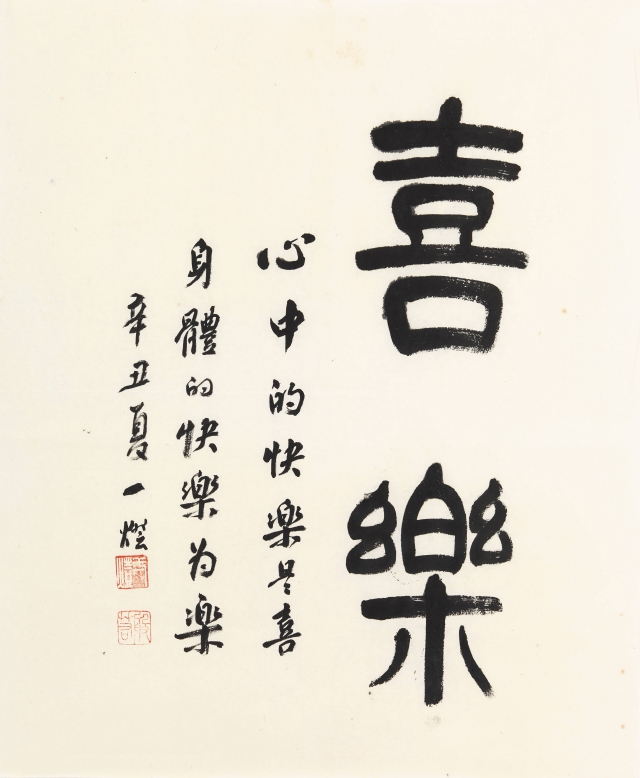 喜樂
心中的快樂是喜
身體的快樂为樂
辛丑夏一燈